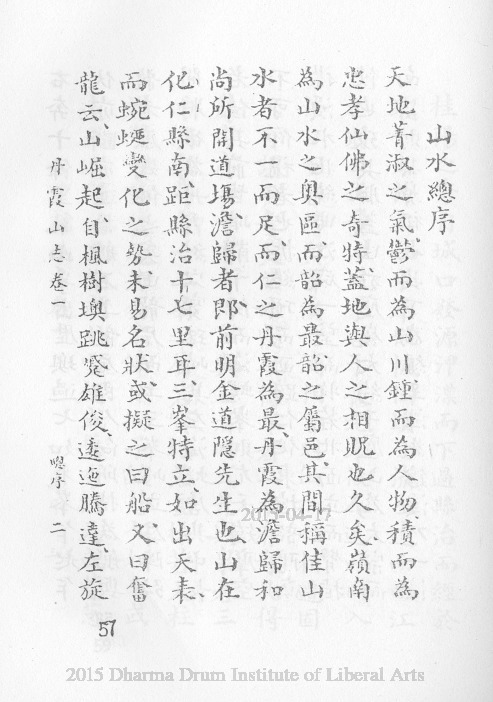 山水總序
天地菁淑之氣鬱而為山川鍾而為人物積而為
忠孝仙佛之奇特蓋地與人之相貺也久矣嶺南
為山水之奧區而韶為最韶之屬邑其間稱佳山
水者不一而足而仁之丹霞為最丹霞為澹歸和
尚所開道場澹歸者即前明金道隱先生也山在
仁化縣南距縣治十七里耳三峯特立如出天表
而蜿蜒變化之勢未易名狀或擬之曰船又曰奮
龍云山崛起自楓樹墺跳盪雄俊逶迤騰達左旋
丹霞山志卷一 總序 二
57
2015-04-17
2015 Dharma Drum Institute of Liberal Arts